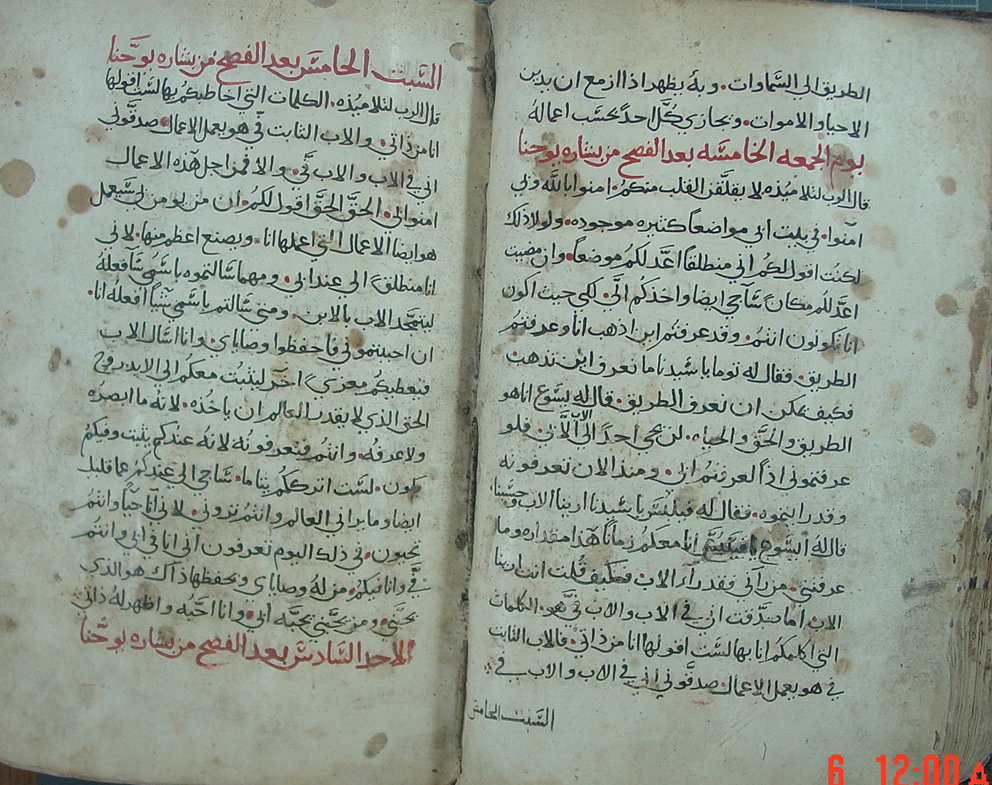 الطريق الي السماوات. وبه يظهر اذا ازمع ان يدين
الاحيا والاموات. ويجازي كل احد بحسب اعماله
يوم الجمعه الخامسه بعد الفصح من بشاره يوحنا
قال الرب لتلاميذه لا يقلقن القلب منكم. امنوا بالله وبي
امنوا. في بيت ابي مواضعا كثيره موجوده. ولولا ذلك
لكنت اقول لكم اني منطلقا اعد لكم موضعا. وان مضيت
اعد لكم مكان سآجي ايضا واخذكم الي. لكي حيث اكون
انا تكونون انتم. وقد عرفتم اين اذهب انا وعرفتم
الطريق. فقال له توما يا سيدنا ما نعرف اين تذهب
فكيف يمكن ان نعرف الطريق. قال له يسوع انا هو
الطريق والحق والحياه. لن يجي احد الي الاب الا بي فلو
عرفتموني اذا لعرفتم ابي. ومنذ الان تعرفونه
وقد رايتموه. فقال له فيلبس يا سيدنا ارينا الاب وحسبنا
قال له ايسوع انا معكم زمانا هذا مقداره وما
عرفتني. من راني فقد راء الاب فكيف قلت انت ارينا
الاب اما صدقت اني في الاب والاب في هو. الكلمات
التي اكلمكم انا بها لست اقولها انا من ذاتي. فالاب الثابت
في هو يعمل الاعمال صدقوني اني في الاب والاب في
السبت الخامس
السبت الخامس بعد الفصح من بشاره يوحنا
قال الرب لتلاميذه. الكلمات التي اخاطبكم بها لست اقولها
انا من ذاتي. والاب الثابت في هو يعمل الاعمال صدقوني
اني في الاب والاب في. والا فمن اجل هذه الاعمال
امنوا بي. الحق الحق اقول لكم. ان من يومن بي سيعمل
هو ايضا الاعمال التي اعملها انا. ويصنع اعظم منها. لاني
انا منطلق الي عند ابي. ومهما سالتموه باسمي سافعله
ليتمجد الاب بالابن. ومتي سالتم باسمي شيا افعله انا.
ان احببتموني فاحفظوا وصاياي. وانا اسال الاب
فيعطيكم معزي اخر ليثبت معكم الي الابد روح
الحق الذي لا يقدر العالم ان ياخذه. لانه ما ابصره
ولا عرفه. وانتم فتعرفونه لانه عندكم يثبت وفيكم
يكون. لست اترككم يتاما. ساجي الي عندكم عما قليل
ايضا وما يراني العالم وانتم تروني. لاني انا حيا وانتم
تحيون. في ذلك اليوم تعرفون اني انا في ابي وانتم
في وانا فيكم. من له وصاياي ويحفظها ذاك هو الذي
يحبني. ومن يحبني يحبه ابي. وانا احبه واظهر له ذاتي
الاحد السادس بعد الفصح من بشاره يوحنا
6 12:00 A